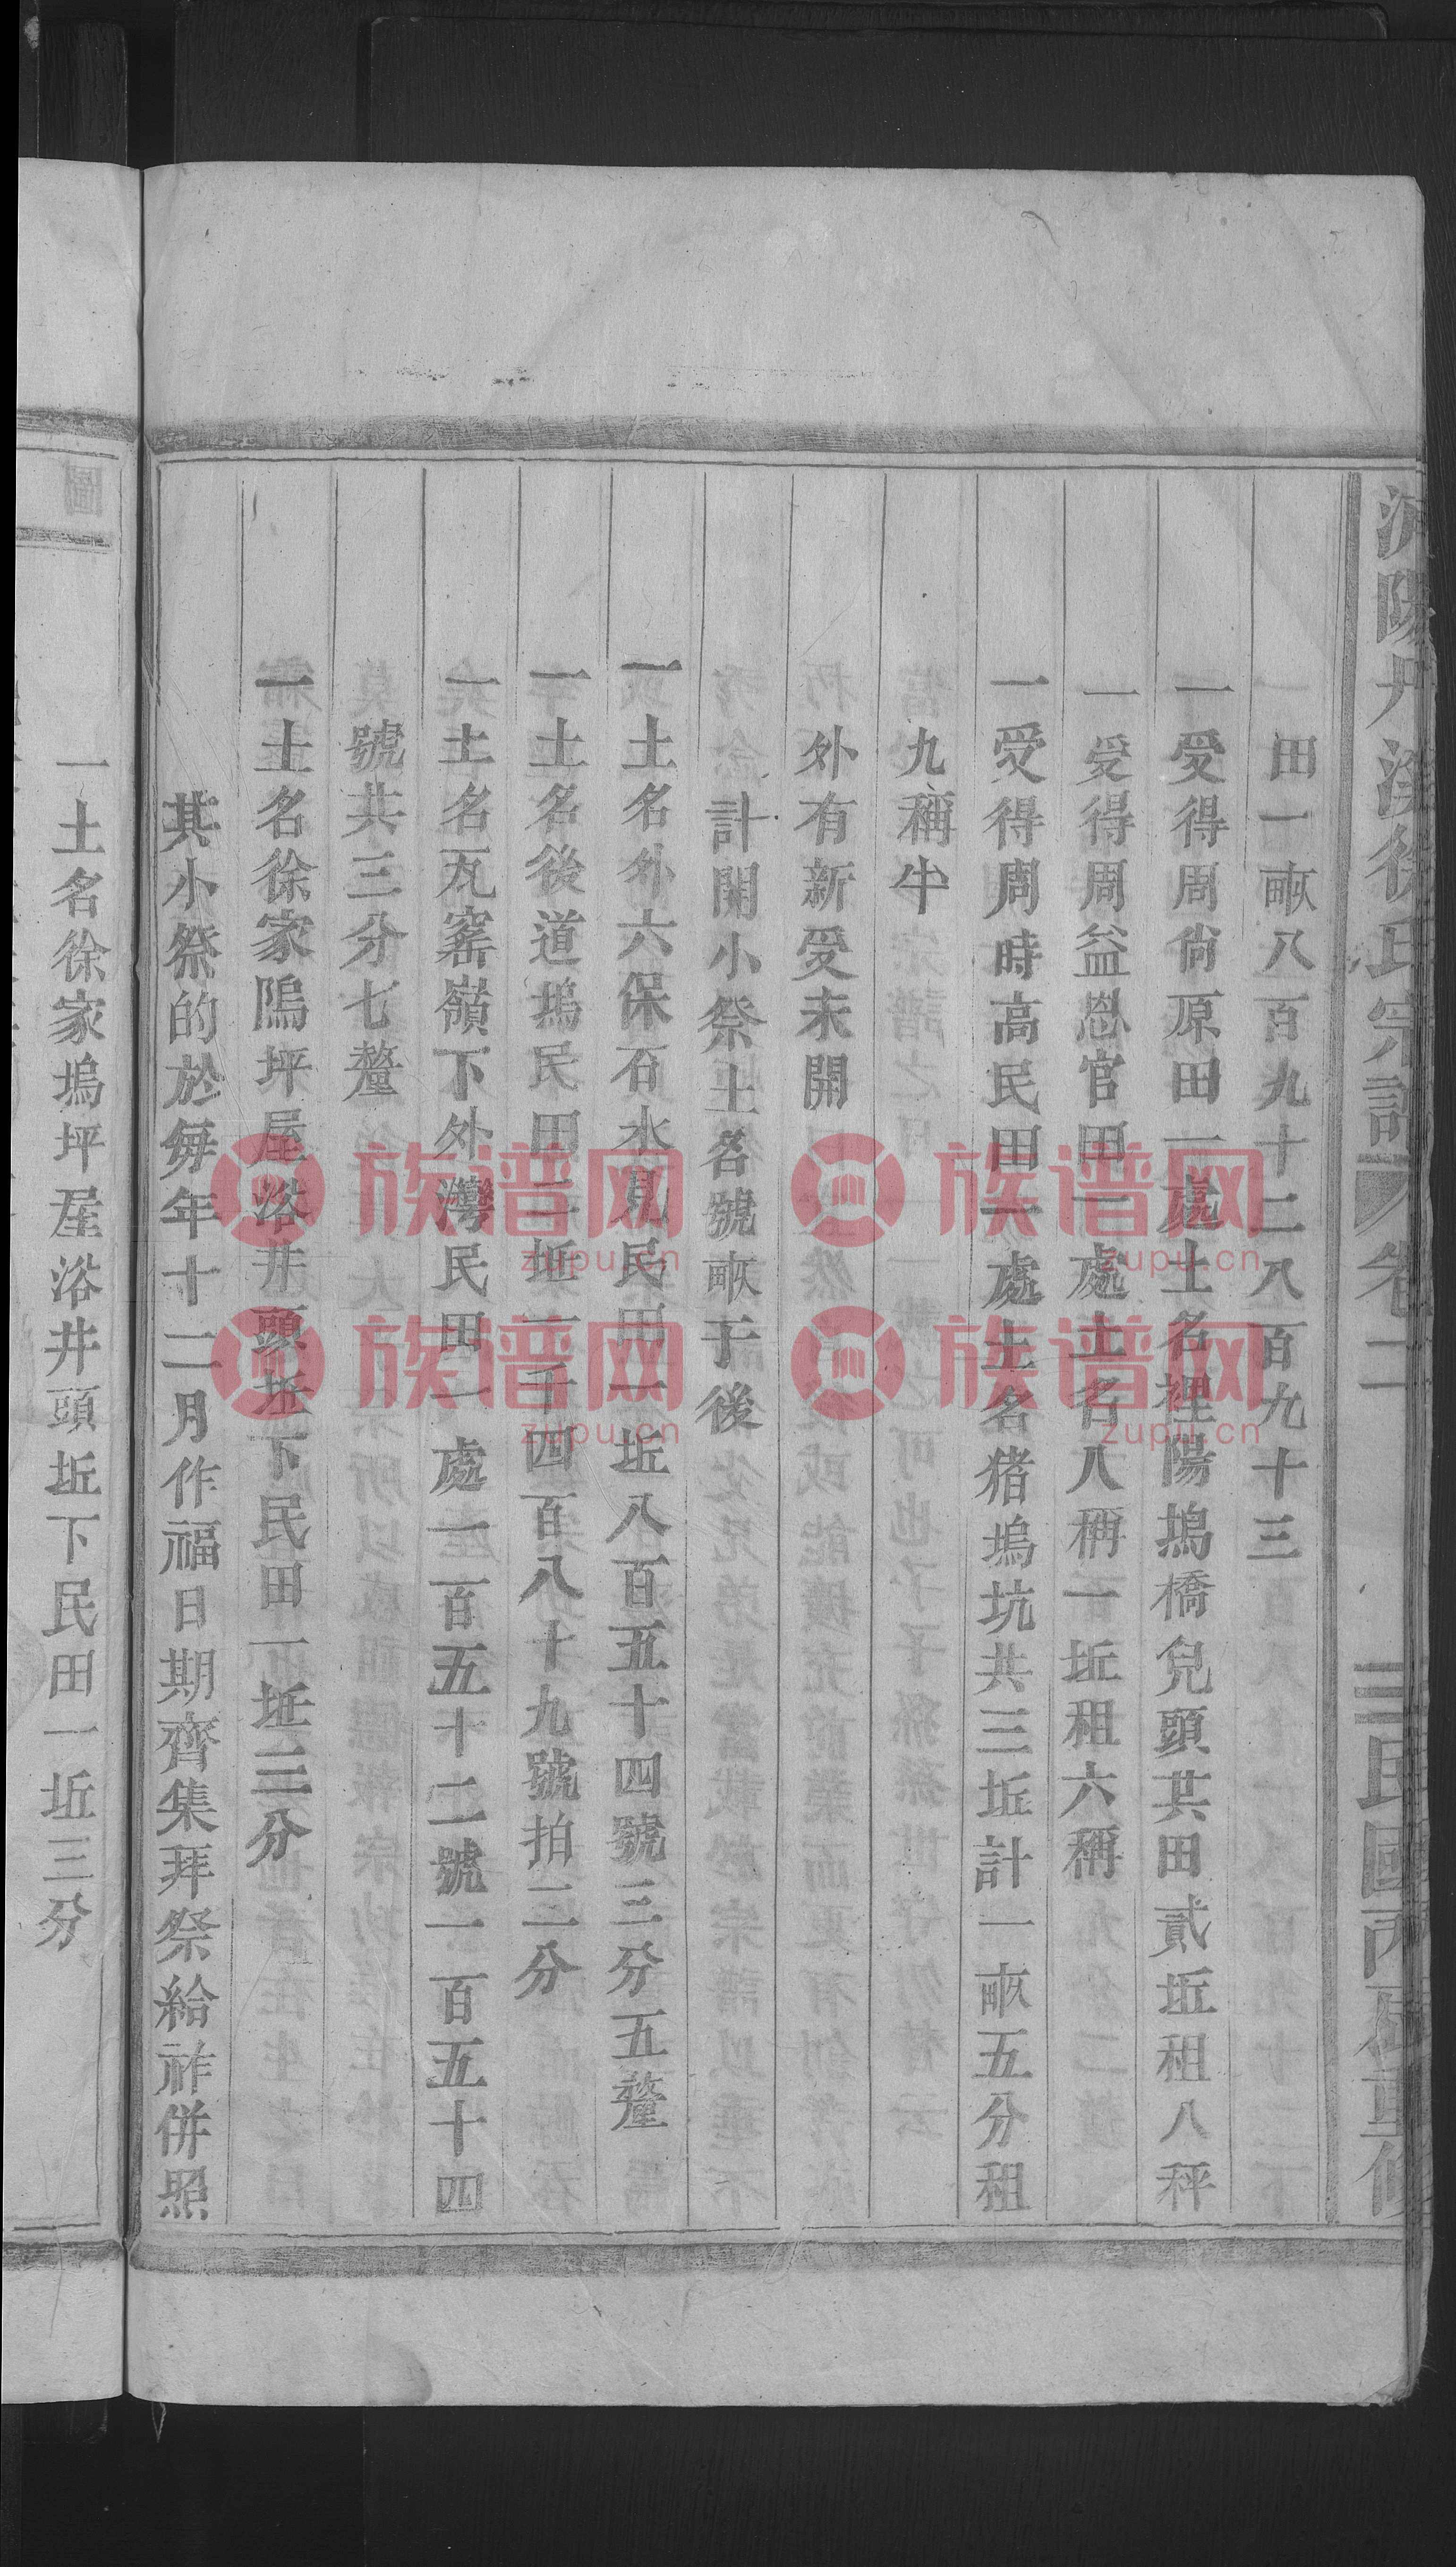 浦陽丹溪徐氏宗譜 卷二 民國丙辰重修
田一畝八百九十二八百九十三
一受得周尚原田一處土名裡陽塢橋兒頭共田貳坵租八秤
一受得周益恩官田一處土名八稱一坵租六稱
一受得周時高民田一處土名猪塢坑共三坵計一畝五分租
九稱牛
外有新受未開
計開小祭土名號畝于後
一土名外六保石水見民田一坵八百五十四號三分五釐
一土名後道塢民田二坵一千四百八十九號拍二分
一土名瓦窰嶺下外灣民田一處一百五十二號一百五十四
號共三分七釐
一土名徐家隖坪屋浴井頭坵下民田一坵三分
其小祭的於每年十二月作福日期齊集拜祭給祚併照
一土名徐家塢坪屋浴井頭坵下民田一坵三分
族谱网
zupu.cn
族谱网
zupu.cn
族谱网
zupu.cn
族谱网
zupu.cn